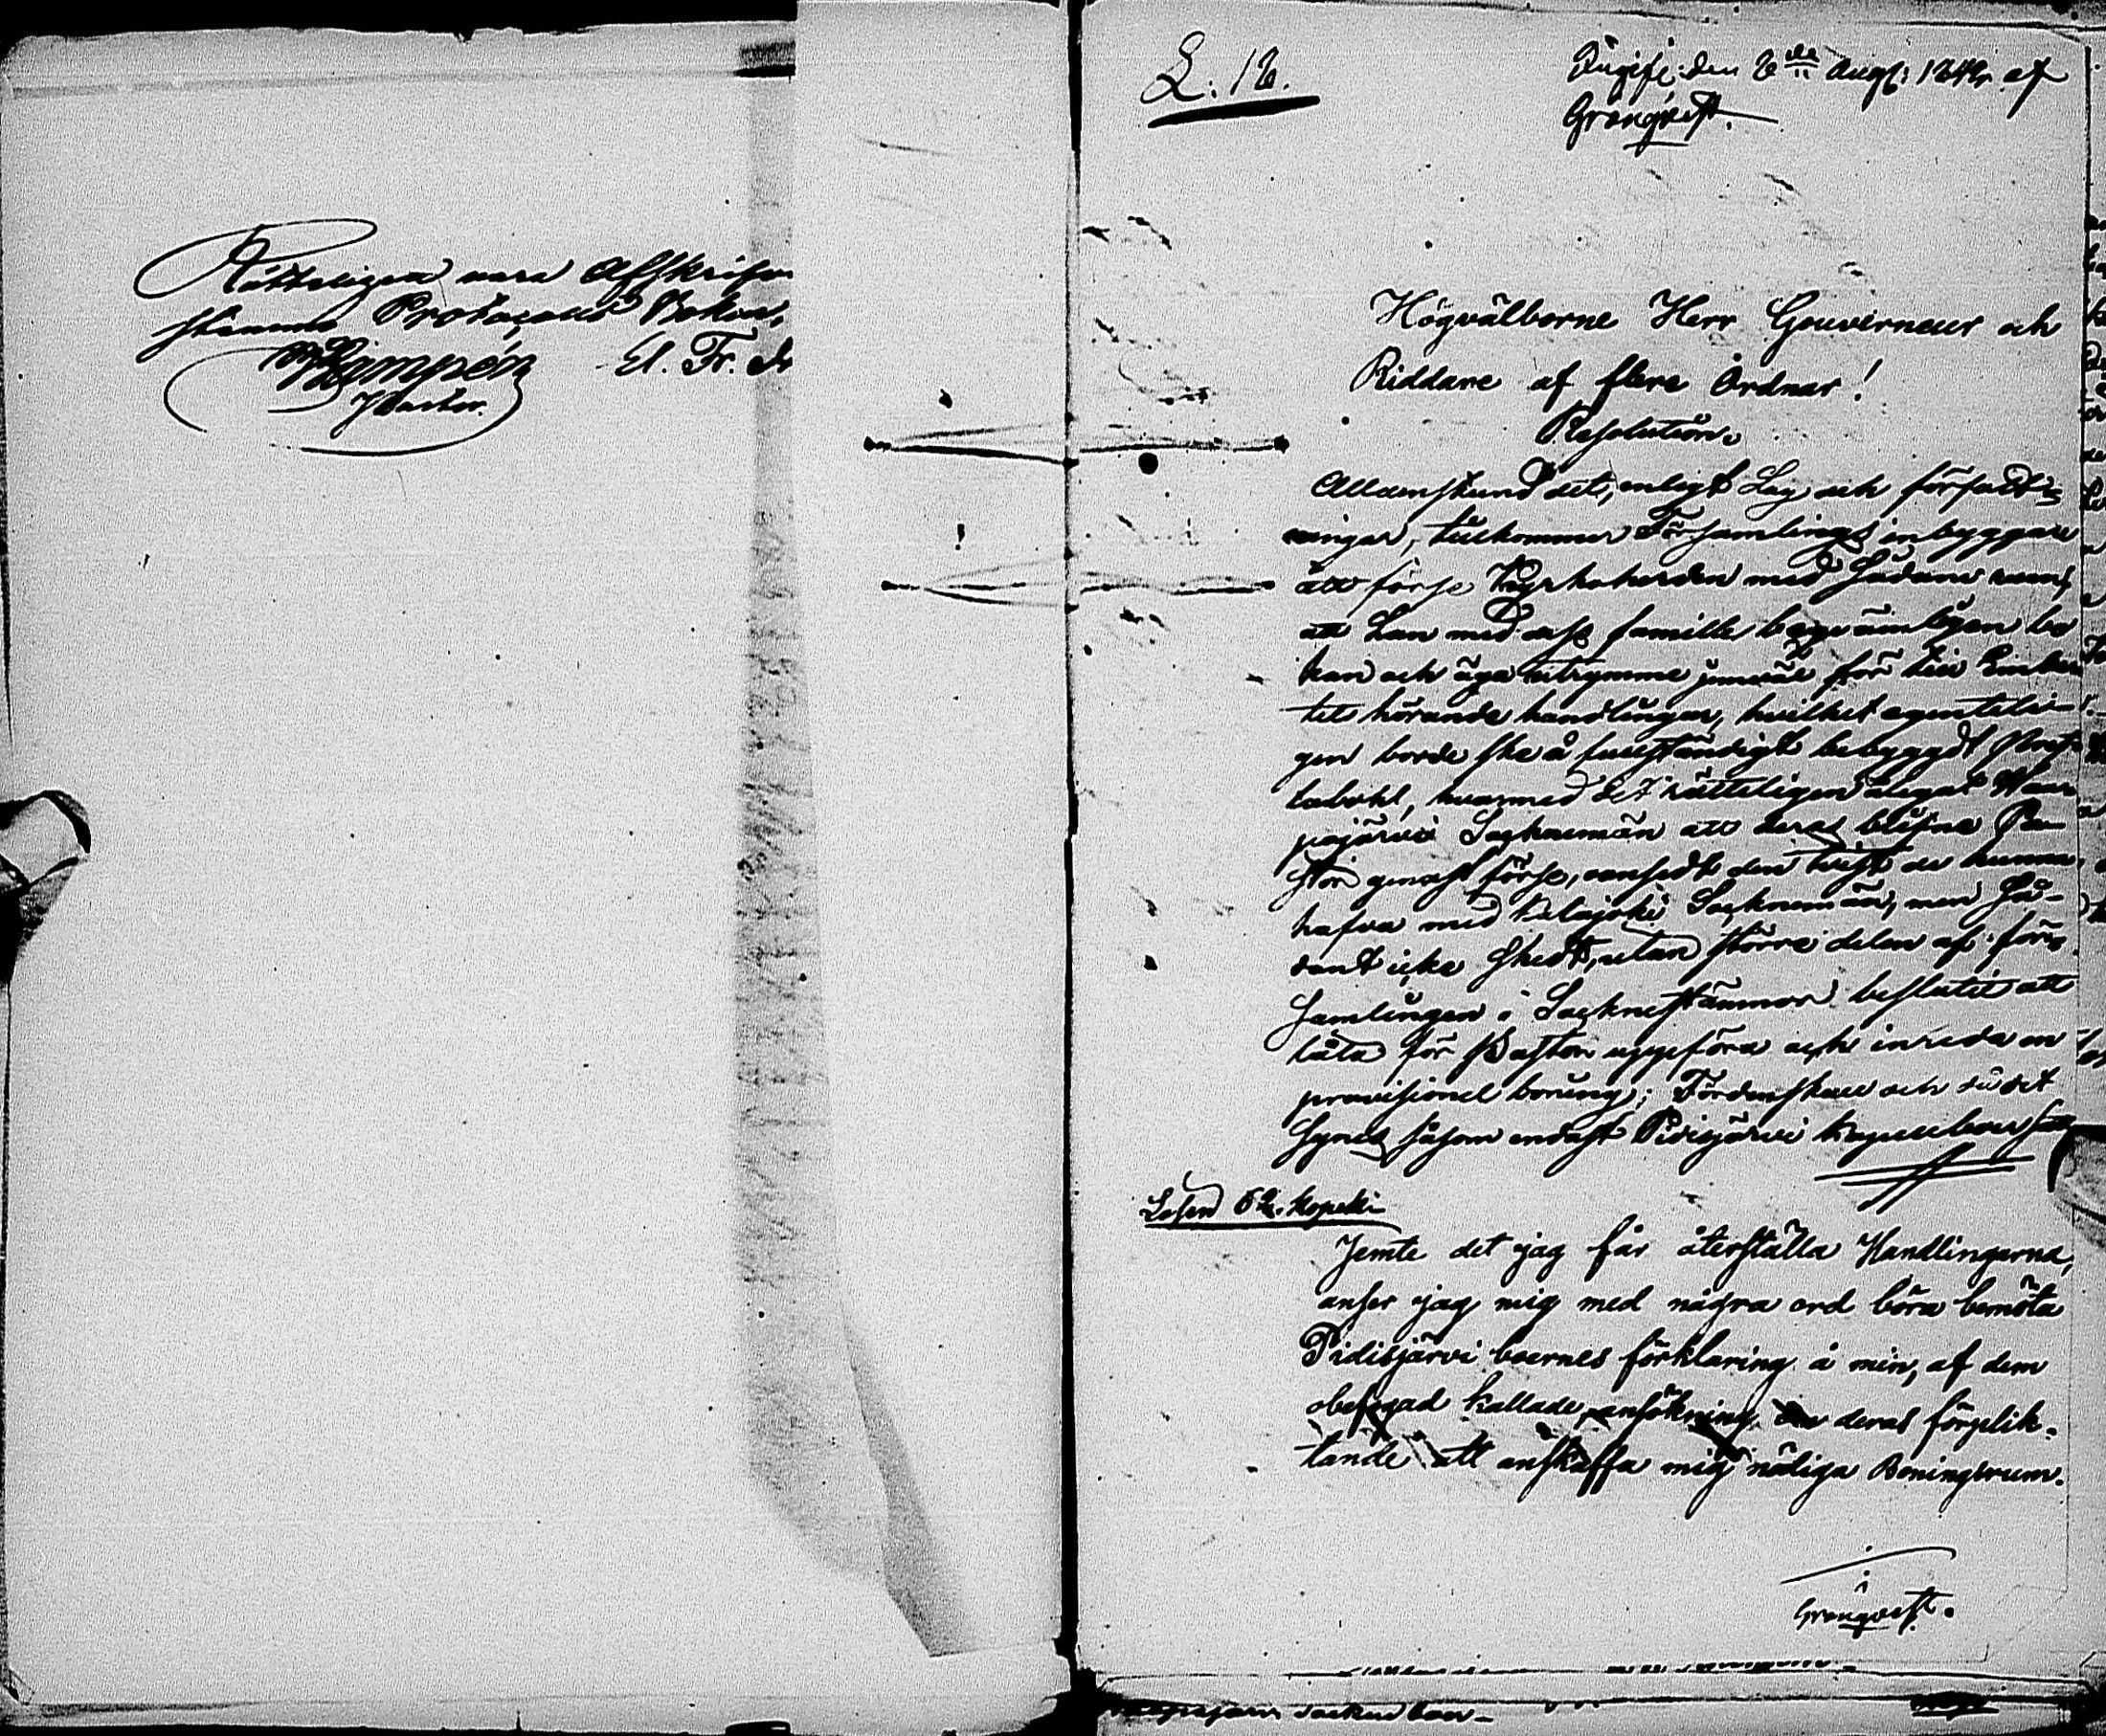 Rätteligen vara Afskrifven
Protocolls Boken,
Pastor.
L: 12.
den 2de Aug: af
Grönqvist.
Högvälborne Herr Gouverneur och
Riddare af flere Ordnar!
Resolution.
Allenstund det, enligt Lag och författ-
ningar, tillkommer Församlings inbyggare
att förse Kyrkoherden med sådane rum,
att han med dess famille beqvämligen bo
kan och äga utrymme jemväl för till Embe
tet hörande handlingar, hvilket egenteli-
gen borde ske å fullständigt bebyggdt Prest
labohl, hvarmed det rätteligen ålegat Haa
pajärvi Socknemän att deras blifne Pa-
stor genast förse, oansedt den tvist de kunna
hafva med Kalajoki Socknemän, men så-
dant icke skedt, utan större delen af för-
samlingen i Sockne stämmor beslutit att
låta för Pastor uppföra och inreda en
provisionel boning; Fördenskull och då det
synes såsom endast Pidisjärvi Kapellboer
Lösen 62. kopeki
Jemte det jag får återställa Handlingarna,
anser jag mig med några ord böra bemöta
Pidisjärvi boernes förklaring å min, af dem
obefogad kallade, ansökning om deras förplik-
tande att anskaffa mig nödiga Boningsrum.
Grönqvist.